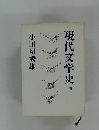 現代文学史
小田切秀雄